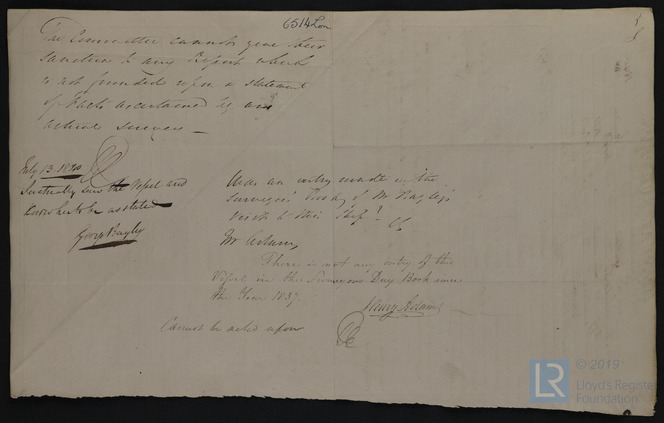 6514 Lon
The Committee cannot give their
Sanction to any Report which
is not founded upon a statement
of Facts ascertained by an
actual survey
July 13 1840
I actually saw the Vessel and
know her to be as stated
George Bayley
Was an entry made in the
Surveyors' Day of Mr Bayley's
visit to this Ship?
Mr Adams,
There is not any entry of this
Vessel in the Surveyors Day Book since
the Year 1837.
Henry Adams
Cannot be acted upon
LR
© 2019
Lloyd's Register
Foundation